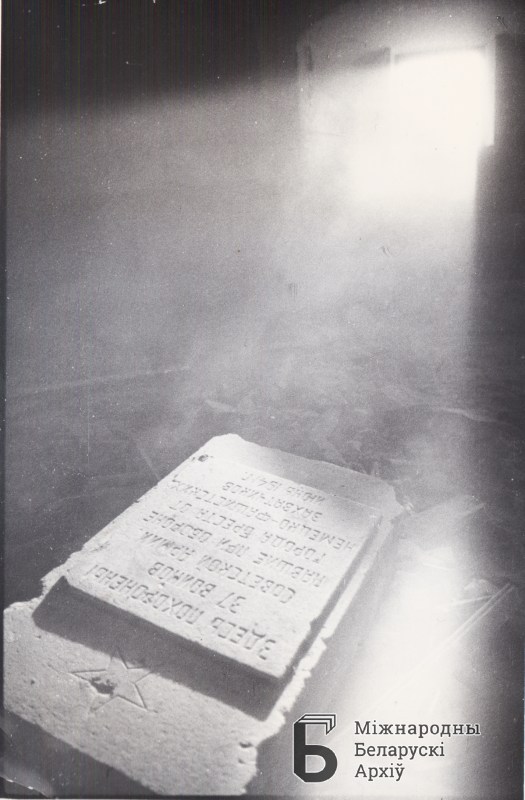 ЗДЕСЬ ПОХОРОНЕНЫ
37 ВОИНОВ
СОВЕТСКОЙ АРМИИ
ПАВШИЕ ПРИ ОБОРОНЕ
ГОРОДА БРЕСТА ОТ
НЕМЕЦКО-ФАШИСТСКИХ
ЗАХВАТЧИКОВ
ИЮНЬ 1941 Г.
Б
Міжнародны
Беларускі
Архіў